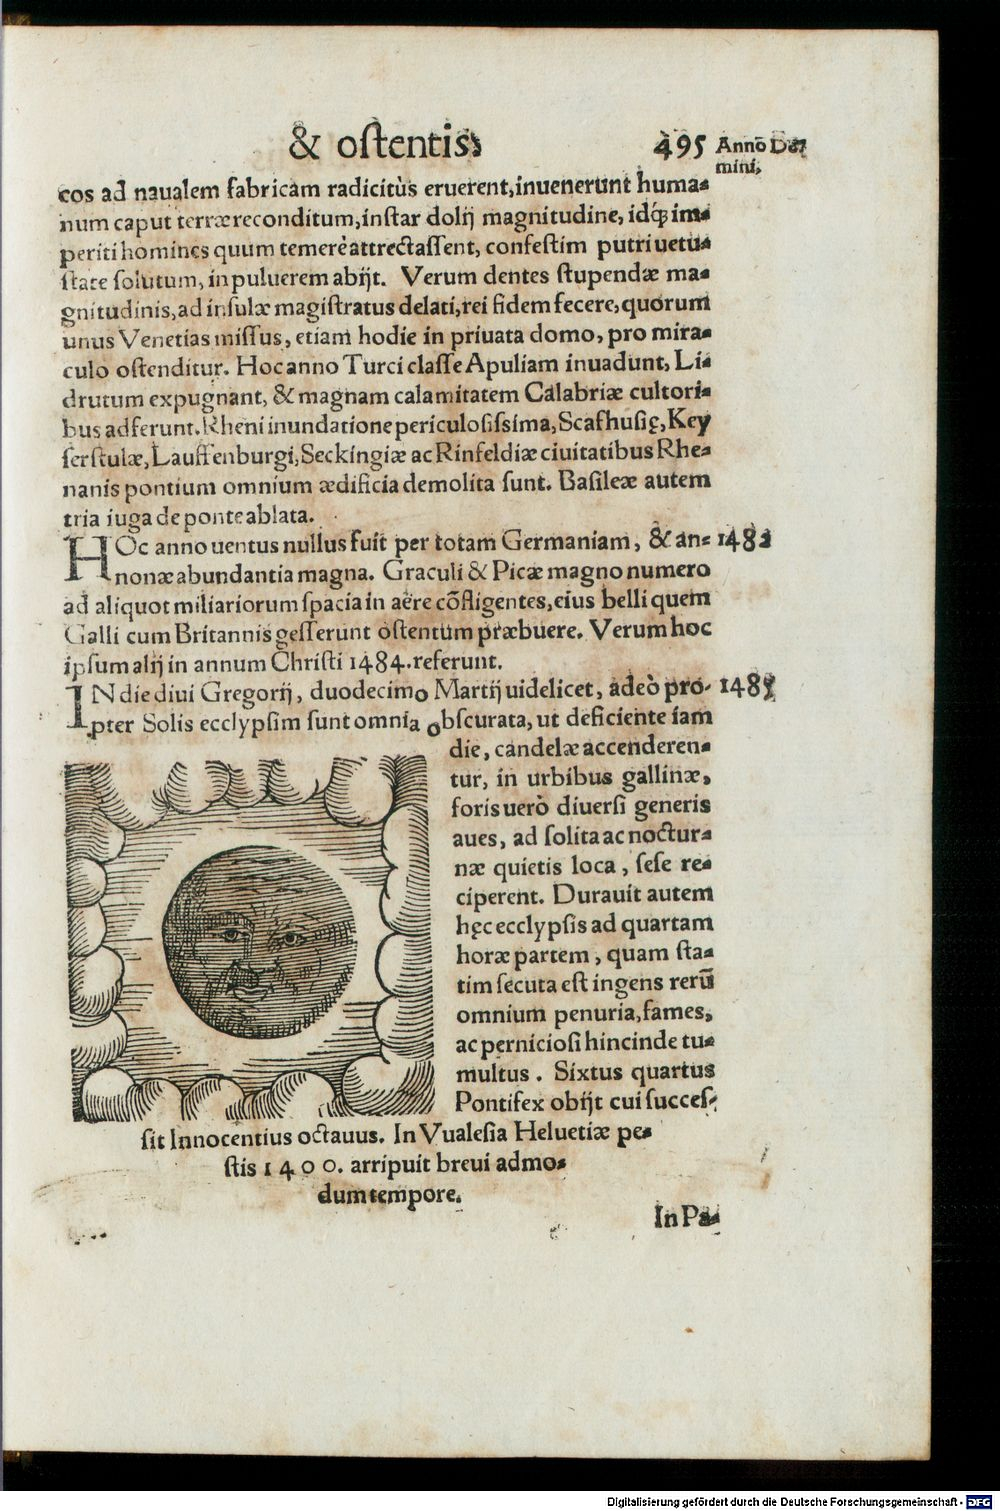 & ostentis. 495 Anno Domini,
cos ad naualem fabricam radicitùs eruerent, inuenerunt huma-
num caput terræ reconditum, instar dolij magnitudine, idq́ʒ im-
periti homines quum temerè attrectassent, confestim putri uetu-
state solutum, in puluerem abijt. Verum dentes stupendæ ma-
gnitudinis, ad insulæ magistratus delati, rei fidem fecere, quorum
unus Venetias missus, etiam hodie in priuata domo, pro mira-
culo ostenditur. Hoc anno Turci classe Apuliam inuadunt, Li-
drutum expugnant, & magnam calamitatem Calabriæ cultori-
bus adferunt. Rheni inundatione periculosissima, Scafhusię, Key
serstulæ, Lauffenburgi, Seckingiæ ac Rinfeldiæ ciuitatibus Rhe-
nanis pontium omnium ædificia demolita sunt. Basileæ autem
tria iuga de ponte ablata.
HOc anno uentus nullus fuit per totam Germaniam, & an- 1482
nonæ abundantia magna. Graculi & Picæ magno numero
ad aliquot miliariorum spacia in aëre cõfligentes, eius belli quem
Galli cum Britannis gesserunt ostentum præbuere. Verum hoc
ipsum alij in annum Christi 1484. referunt.
IN die diui Gregorij, duodecimo Martij uidelicet, adeò pro- 1485
pter Solis ecclypsim sunt omnia obscurata, ut deficiente iam
die, candelæ accenderen-
tur, in urbibus gallinæ,
foris uerò diuersi generis
aues, ad solita ac noctur-
næ quietis loca, sese re-
ciperent. Durauit autem
hęc ecclypsis ad quartam
horæ partem, quam sta-
tim secuta est ingens rerũ
omnium penuria, fames,
ac perniciosi hincinde tu-
multus. Sixtus quartus
Pontifex obijt cui succes-
sit Innocentius octauus. In Vualesia Heluetiæ pe-
stis 1400. arripuit breui admo-
dum tempore.
In Pa-
Digitalisierung gefördert durch die Deutsche Forschungsgemeinschaft - DFG